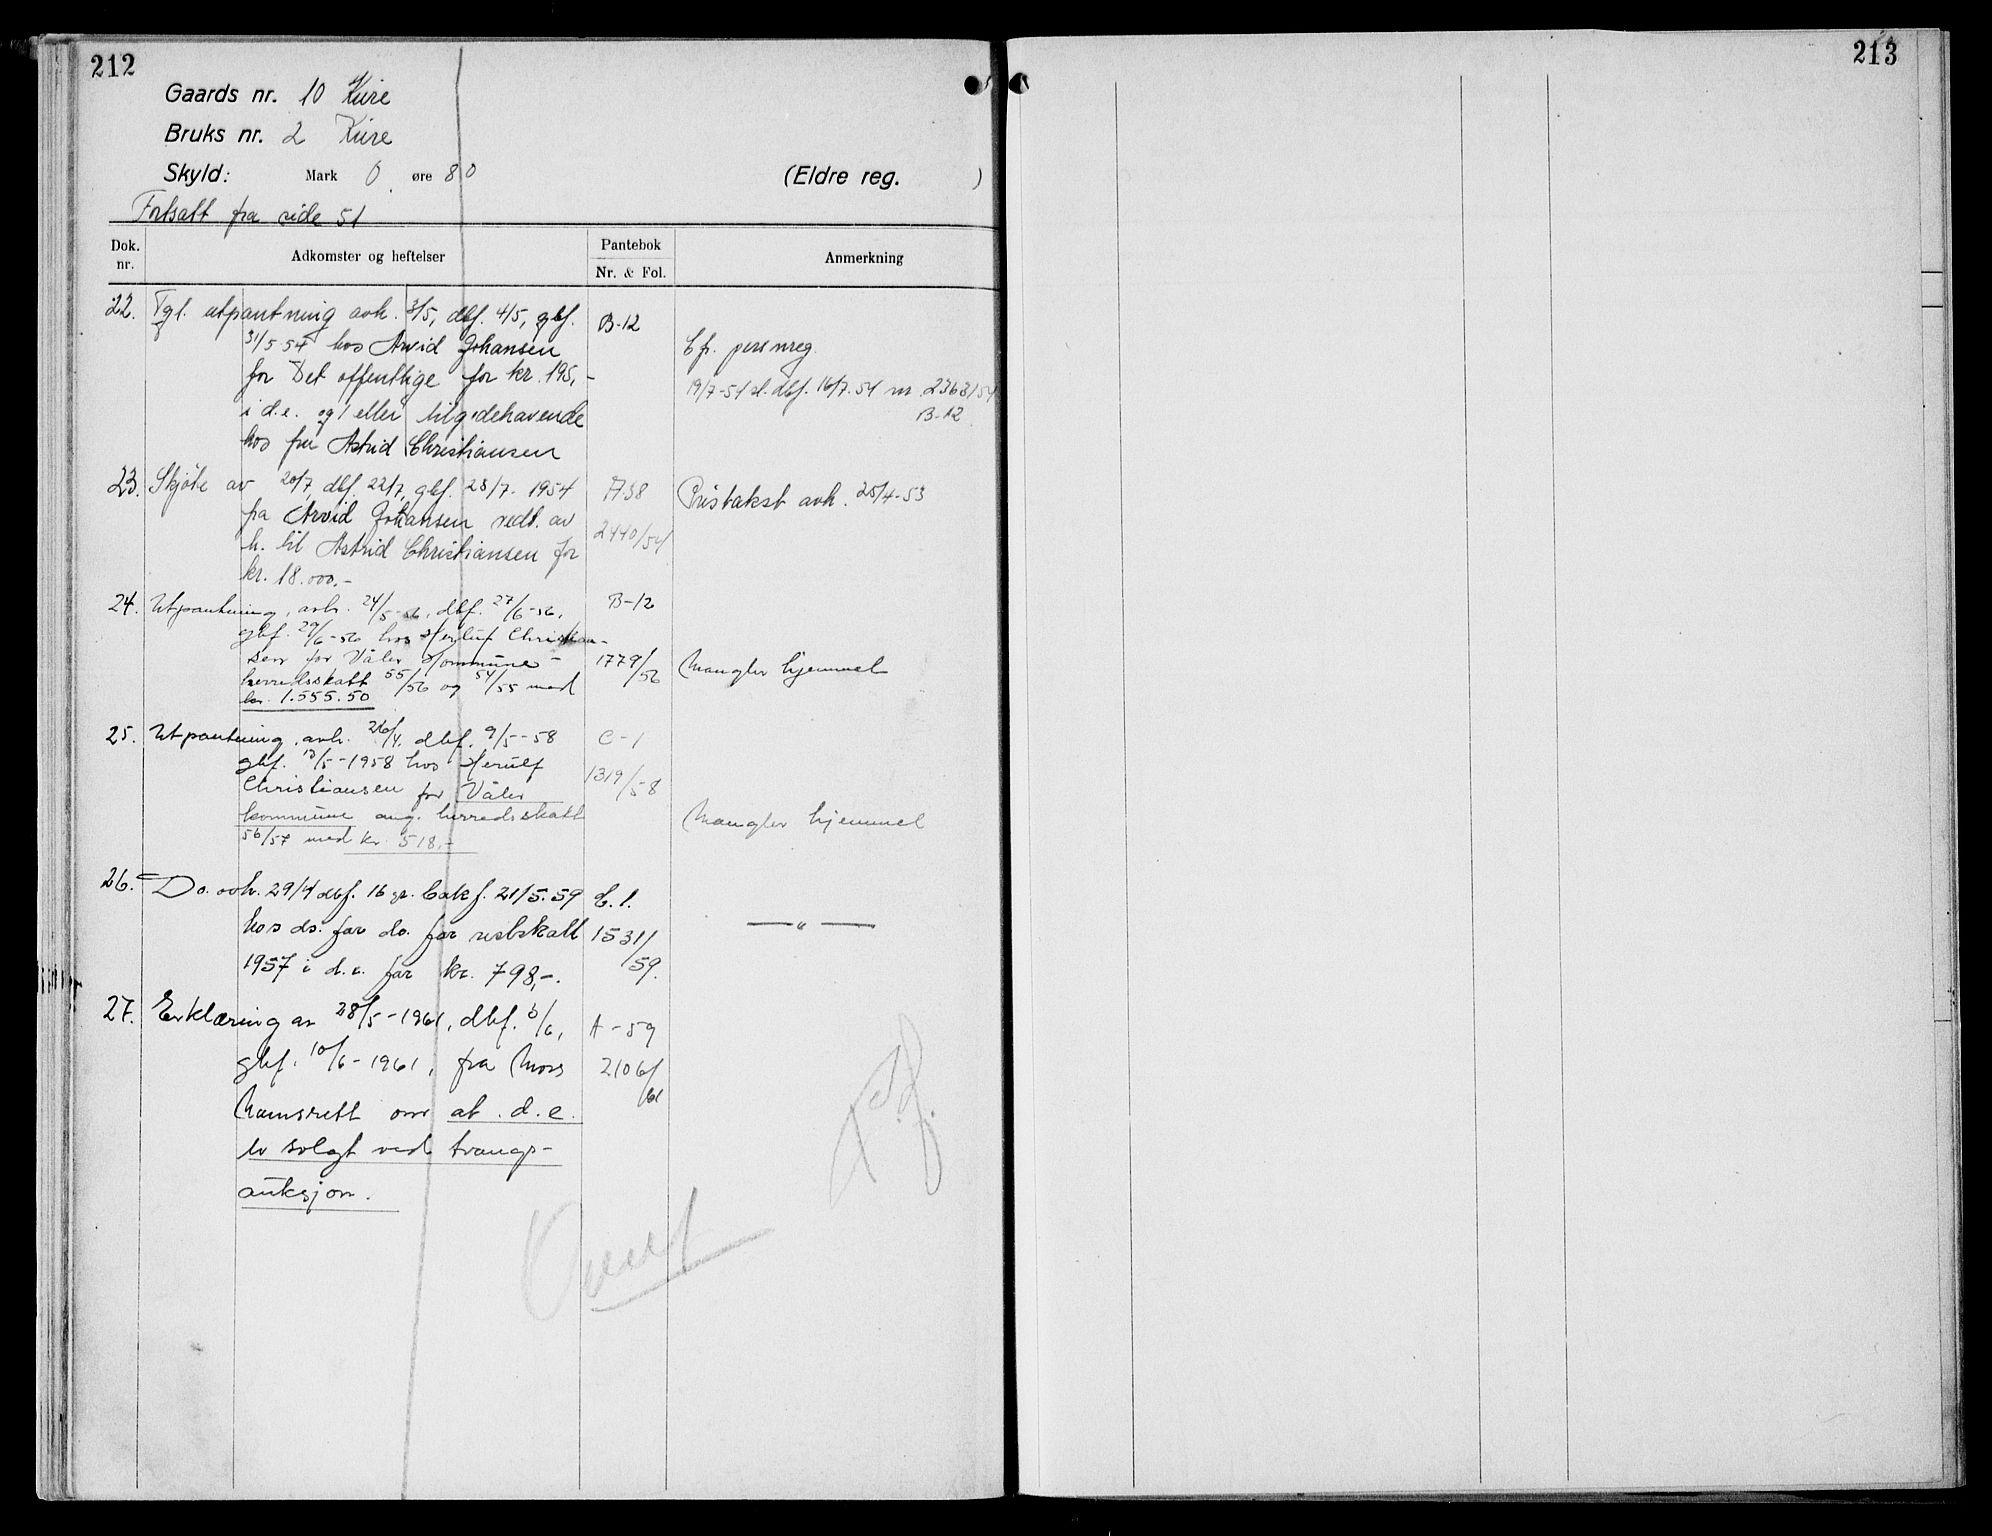 212
213
Gaards nr. 10 Kure
Bruks nr. 2 Kure
Skyld: Mark 0 øre 80 (Eldre reg. )
Fortsatt fra side 51
Dok. nr.
Adkomster og heftelser
Pantebok
Nr. & Fol.
Anmerkning
22. Tgl. utpantning avh. 3/5, dbf. 4/5, gbf.
31/5 54 hos Arvid Johansen
for Det offentlige for kr. 195,-
i d.e. og/eller tilgodehavende
hos fru Astrid Christiansen
B-12
Cfr. persreg.
19/7-54 sl. dbf. 16/7.54 nr. 2363/54
B-12
23. Skjöte av 20/7, dbf. 22/7, gbf. 23/7- 1954
fra Arvid Johansen vedt. av
h. til Astrid Christiansen for
kr. 18.000.-
A-38
2440/54
Pristakst avh. 25/4-53
24. Utpantning, avh. 24/5-56, dbf. 27/6-56,
gbf. 29/6-56 hos Herluf Christian-
sen for Våler Kommune -
herredsskatt 55/56 og 54/55 med
kr. 1.555.50
B-12
1779/56
Mangler hjemmel
25. Utpantning, avh. 26/4. dbf. 9/5-58
gbf. 13/5-1958 hos Herulf
Christiansen for Våler
kommune ang. herredsskatt
56/57 med kr. 518,-
C-1
1319/58
Mangler hjemmel
26. Do. avh. 29/4 dbf. 16 gr. bakf. 21/5.59
hos do. for do. for restskatt
1957 i d.e. for kr. 798,-.
C. 1.
1531/59.
— " —
27. Erklæring av 28/5-1961, dbf. 3/6,
gbf. 10/6-1961, fra Moss
Namsrett om at d.e.
er solgt ved tvangs-
auksjon.
A-59
2106/61
Overf